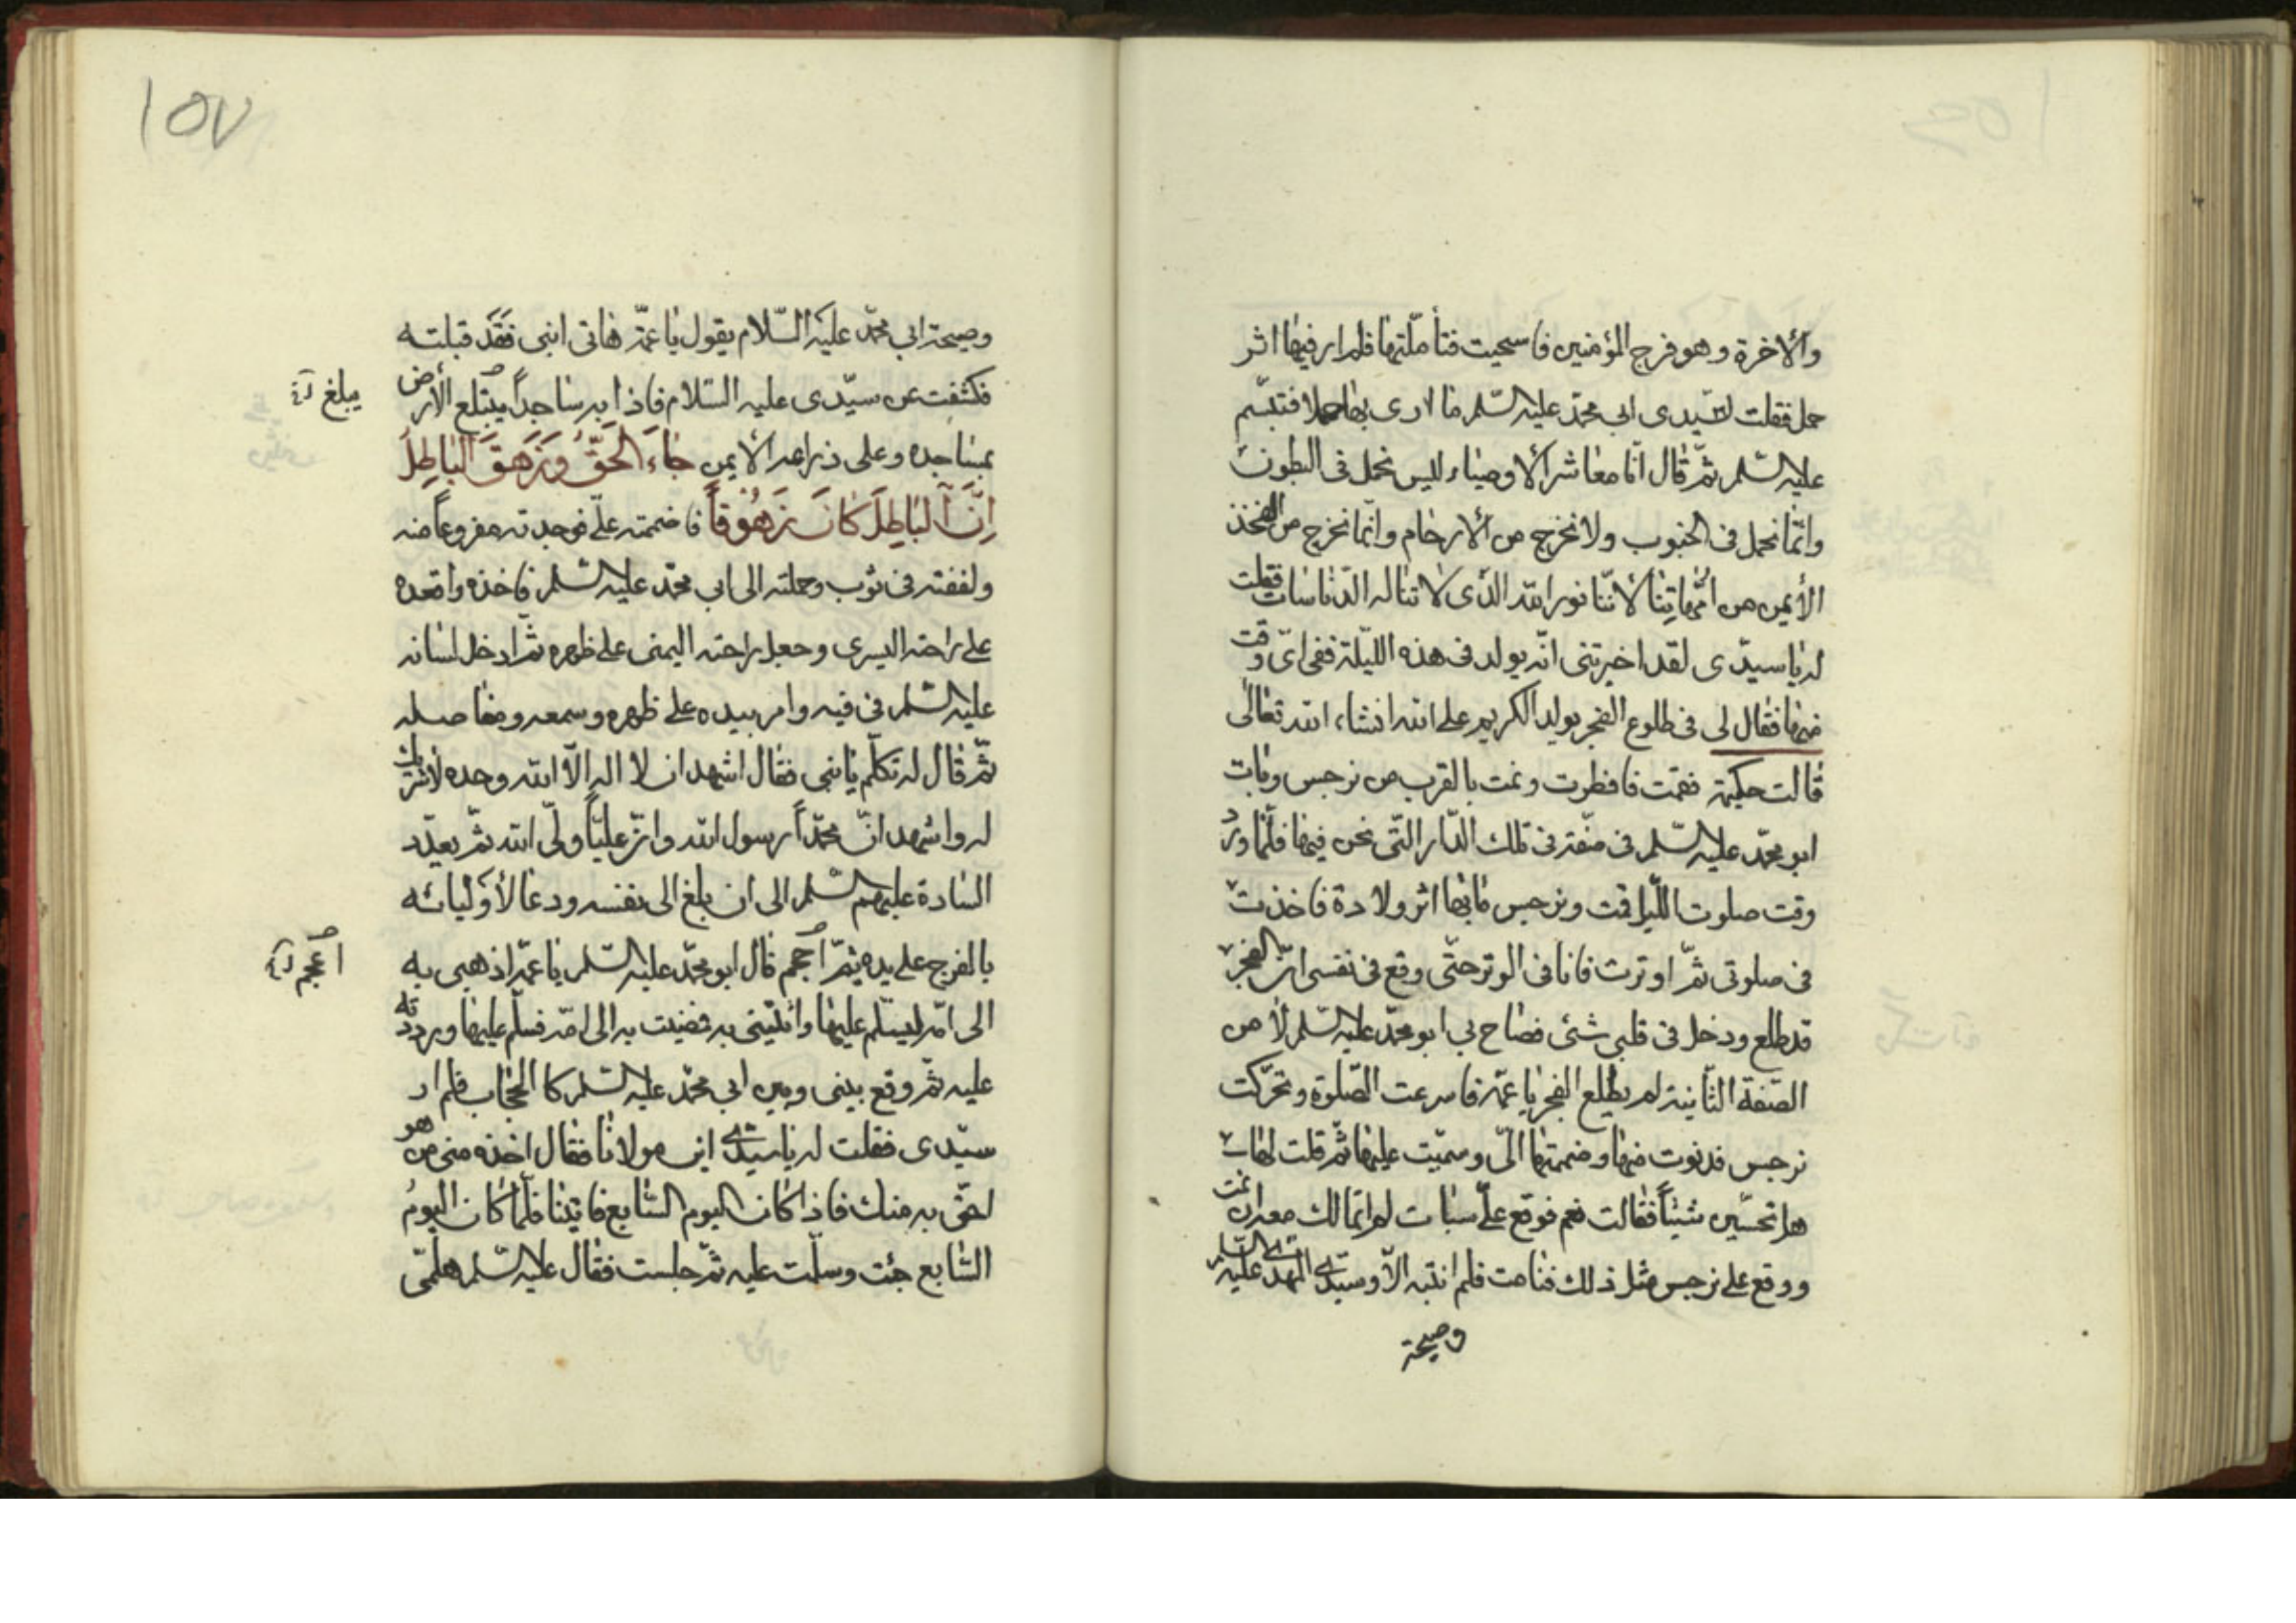 والاخرة وهو فرج المؤمنين فاستحيت فتأملّتها فلم ار فيها اثر
حمل فقلت لسيّدى ابى محمّد عليه السّلم ما ارى بها حملا فتبسّم
عليه السّلم ثمّ قال انّا معاشر الاوصياء ليس نحمل فى البطون
وانّما نحمل فى الجنوب ولا نخرج من الارحام وانّما نخرج من الفخذ
الأيمن من امّهاتنا لأنّنا نور الله الذّى لا تناله الدّناسات فقلت
له يا سيدّى لقد اخبرتنى انّه يولد فى هذه اللّيلة ففى اىّ وقت
منها فقال لى فى طلوع الفجر يولد الكريم على الله انشاء الله تعالى
قالت حكيمة فقمت فافطرت ونمت بالقرب من نرجس وبات
ابو محمّد عليه السّلم فى صفّة فى تلك الدّار التّى نحن فيها فلمّا ورد
وقت صلوت اللّيل قمت ونرجس ما بها اثر ولادة فاخذت
فى صلوتى ثمّ اوترت فانا فى الوتر حتّى وقع فى نفسى انّ الفجر
قد طلع ودخل فى قلبى شئ فصاح بى ابو محمّد عليه السّلم من
الصّفة الثّانية لم يطلع الفجر يا عمّة فاسرعت الصّلوة وتحرّكت
نرجس فدنوت منها وضممتها الىّ وسمّيت عليها ثمّ قلت لها
هل تحسّين شيئاً فقالت نعم فوقع علىّ سبات لم اتمالك معه ان نمت
ووقع على نرجس مثل ذلك فنامت فلم انتبه الاّ وسيّدى المهدى عليه السّلم
وصيحة
١٥٧
وصيحة ابى محمّد عليه السّلام يقول يا عمّة هاتى ابنى فقد قبلته
فكشفت عن سيّدى عليه السّلام فاذا به ساجداً يبتلع الأرض
يبلغ
بمساجده وعلى ذراعه الأيمن جاء الحقّ وزهق الباطل
انّ الباطل كان زهوقاً فاضممته علىّ فوجدته مفروغاً منه
ولففته فى ثوب وحملته الى ابى محمّد عليه السّلم فاخذه واقعده
على راحته اليسرى وجعل راحته اليمنى على ظهره ثمّ ادخل لسانه
عليه السّلم فى فيه وامر بيده على ظهره وسمعه ومفاصله
ثمّ قال له تكلّم يا بنى فقال اشهد ان لا اله الاّ الله وحده لا شريك
له واشهد انّ محمّداً رسول الله وانّ عليّاً ولىّ الله ثمّ يعدّد
السادة عليهم السّلم الى ان بلغ الى نفسه ودعا لأوليائه
بالفرج على يده ثمّ احجم قال ابو محمّد عليه السّلم يا عمّة اذهبى به
اعجم
الى امّه ليسلّم عليها وأتينى به فمضيت به الى امّه فسلّم عليها ورددته
عليه ثمّ وقع بينى وبين ابى محمّد عليه السّلم كالحجاب فلم ار
سيّدى فقلت له يا سيدى اين مولانا فقال اخذه منى من هو
احقّ به منك فاذا كان اليوم السّابع فاتينا فلمّا كان اليوم
السّابع جئت وسلّمت عليه ثمّ جلست فقال عليه السّلم هلمّى